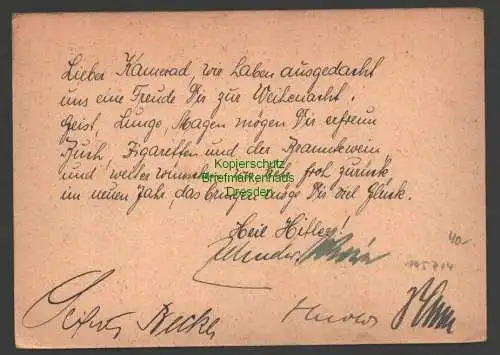 Lieber Kamerad, wir haben ausgedacht
uns eine Freude Dir zur Weihenacht.
Geist, Lunge, Magen mögen Dir erfreun
Buch, Zigaretten und der Branntwein
und weiter wünschen wir froh zurück
im neuen Jahr, das bringen möge Dir viel Glück.
Heil Hitler!
Becker
40.-
145714
Kopierschutz
Briefmarkenhaus
Dresden